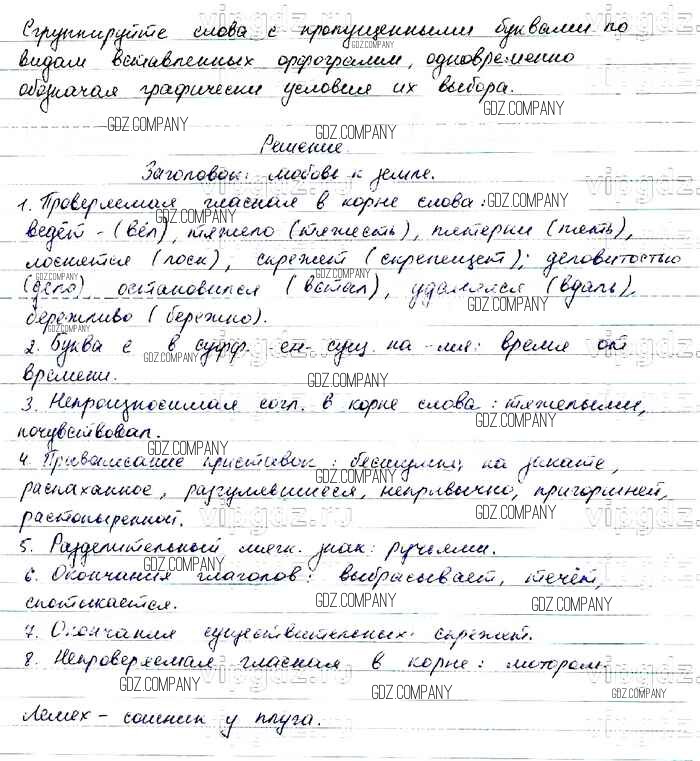 Сгруппируйте слова с пропущенными буквами по
видам вставленных орфограмм, одновременно
обозначая графически условия их выбора.
Решение
Заголовок: любовь к земле.
1. Проверяемая гласная в корне слова:
ведёт - (вёл), тяжело (тяжесть), пятерни (пять),
лоснется (лоск), скрежет (скрежещет); деловитостью
(дело) остановился (встал), удалялся (вдаль),
бережливо (бережно).
2. Буква е в суфф. -ен- сущ. на -мя: время от
времени.
3. Непроизносимая согл. в корне слова: тяжелыми,
почувствовал.
4. Правописание приставок: бесшумно, на закате,
распаханное, разгулявшиеся, непривычно, пригоршней,
растопыренной.
5. Разделительный мягк. знак: ручьями.
6. Окончания глаголов: выбрасывает, течёт,
спотыкается.
7. Окончания существительных: скрежет.
8. Непроверяемая гласная в корне: мотором.
Лемех - сошник у плуга.
GDZ.COMPANY
vipgdz.ru